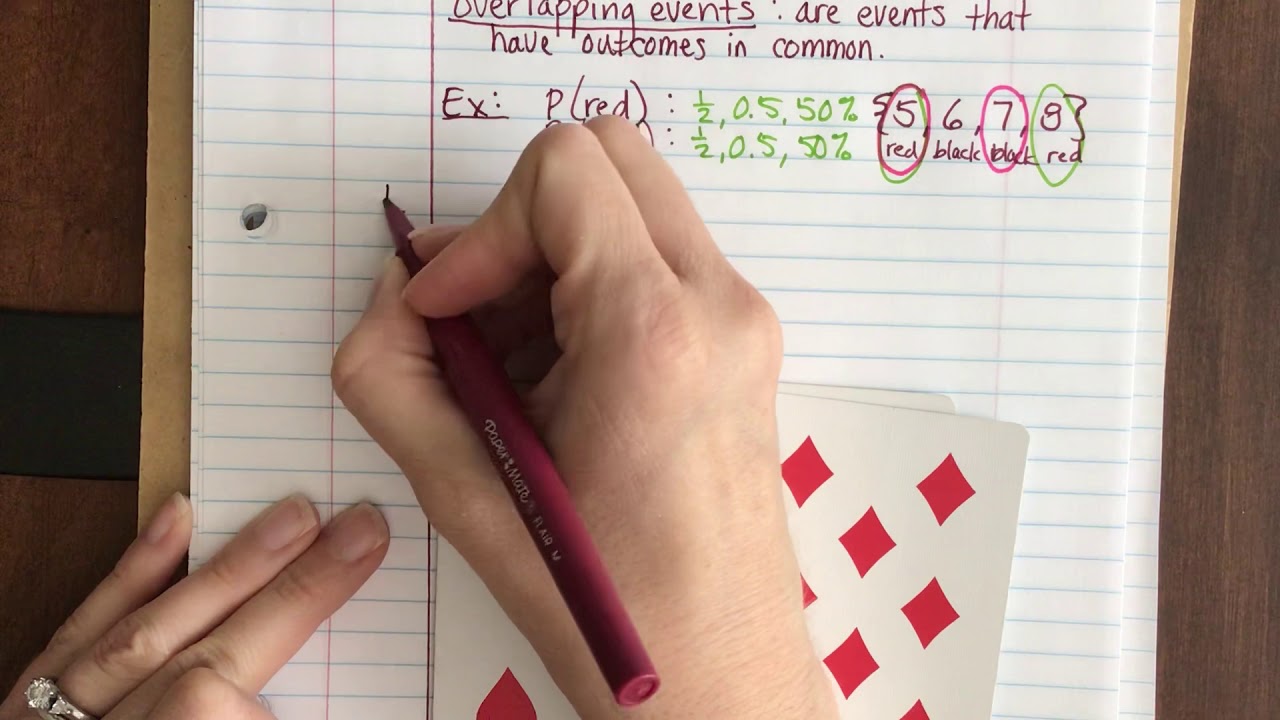 Overlapping events : are events that
have outcomes in common.
Ex: P(red) : 1/2, 0.5, 50% {5, 6, 7, 8}
: 1/2, 0.5, 50% red black black red
Paper:Mate FLAIR M